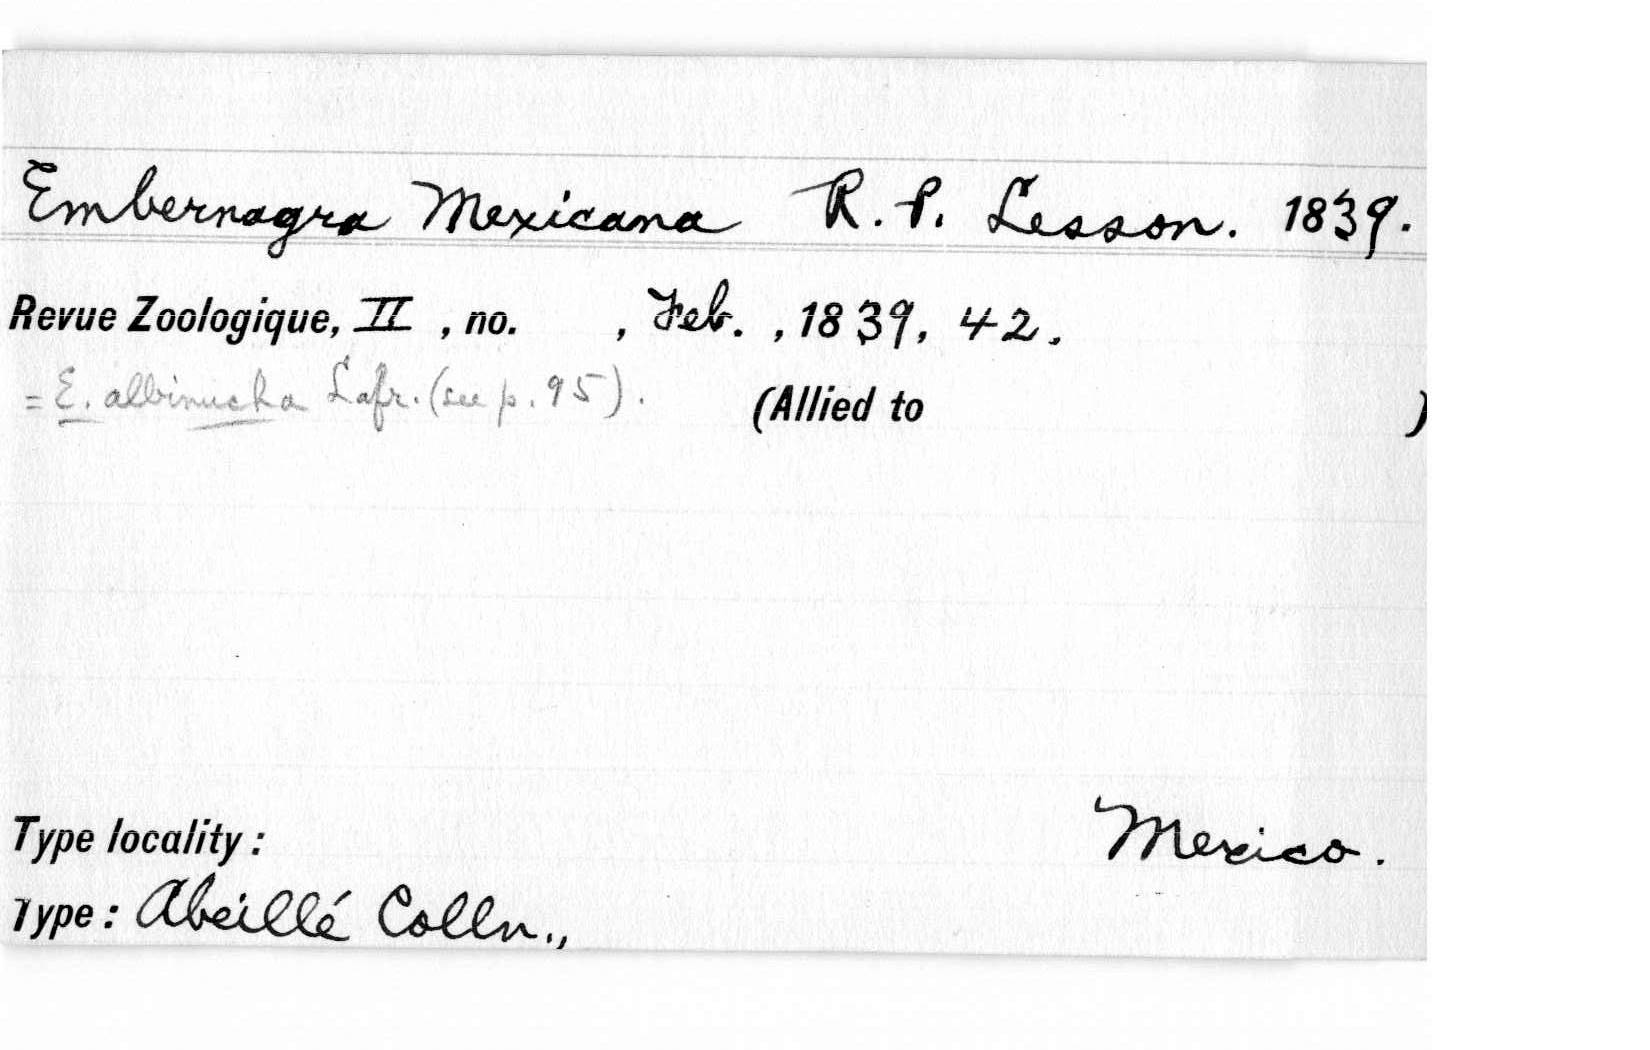 Embernagra Mexicana R. P. Lesson. 1839.
Revue Zoologique, II , no. , Feb. , 1839, 42.
= E. albinucha Lafr. (see p. 95). (Allied to )
Type locality : Mexico.
Type : Abeillé Colln.,